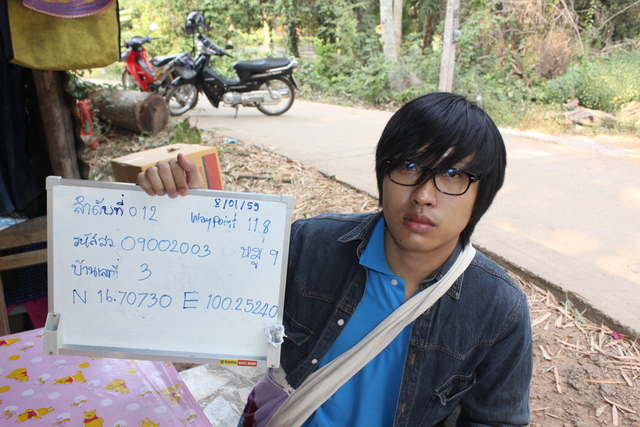 8/01/59
ลำดับที่ 012 Waypoint 118
รหัสสว 09002003 หมู่ 9
บ้านเลขที่ 3
N 16.70730 E 100.25240